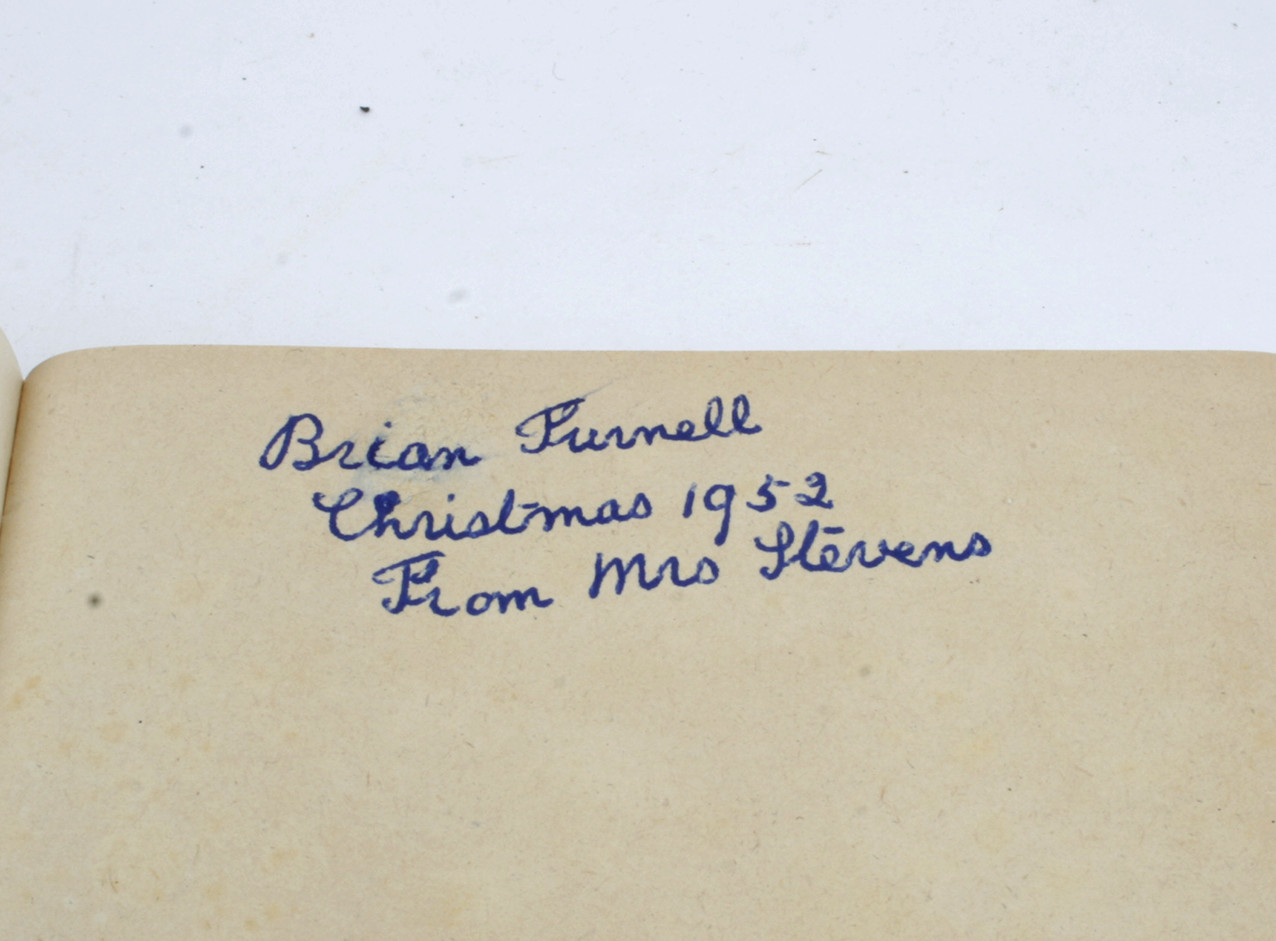 Brian Furnell
Christmas 1952
From Mrs Stevens